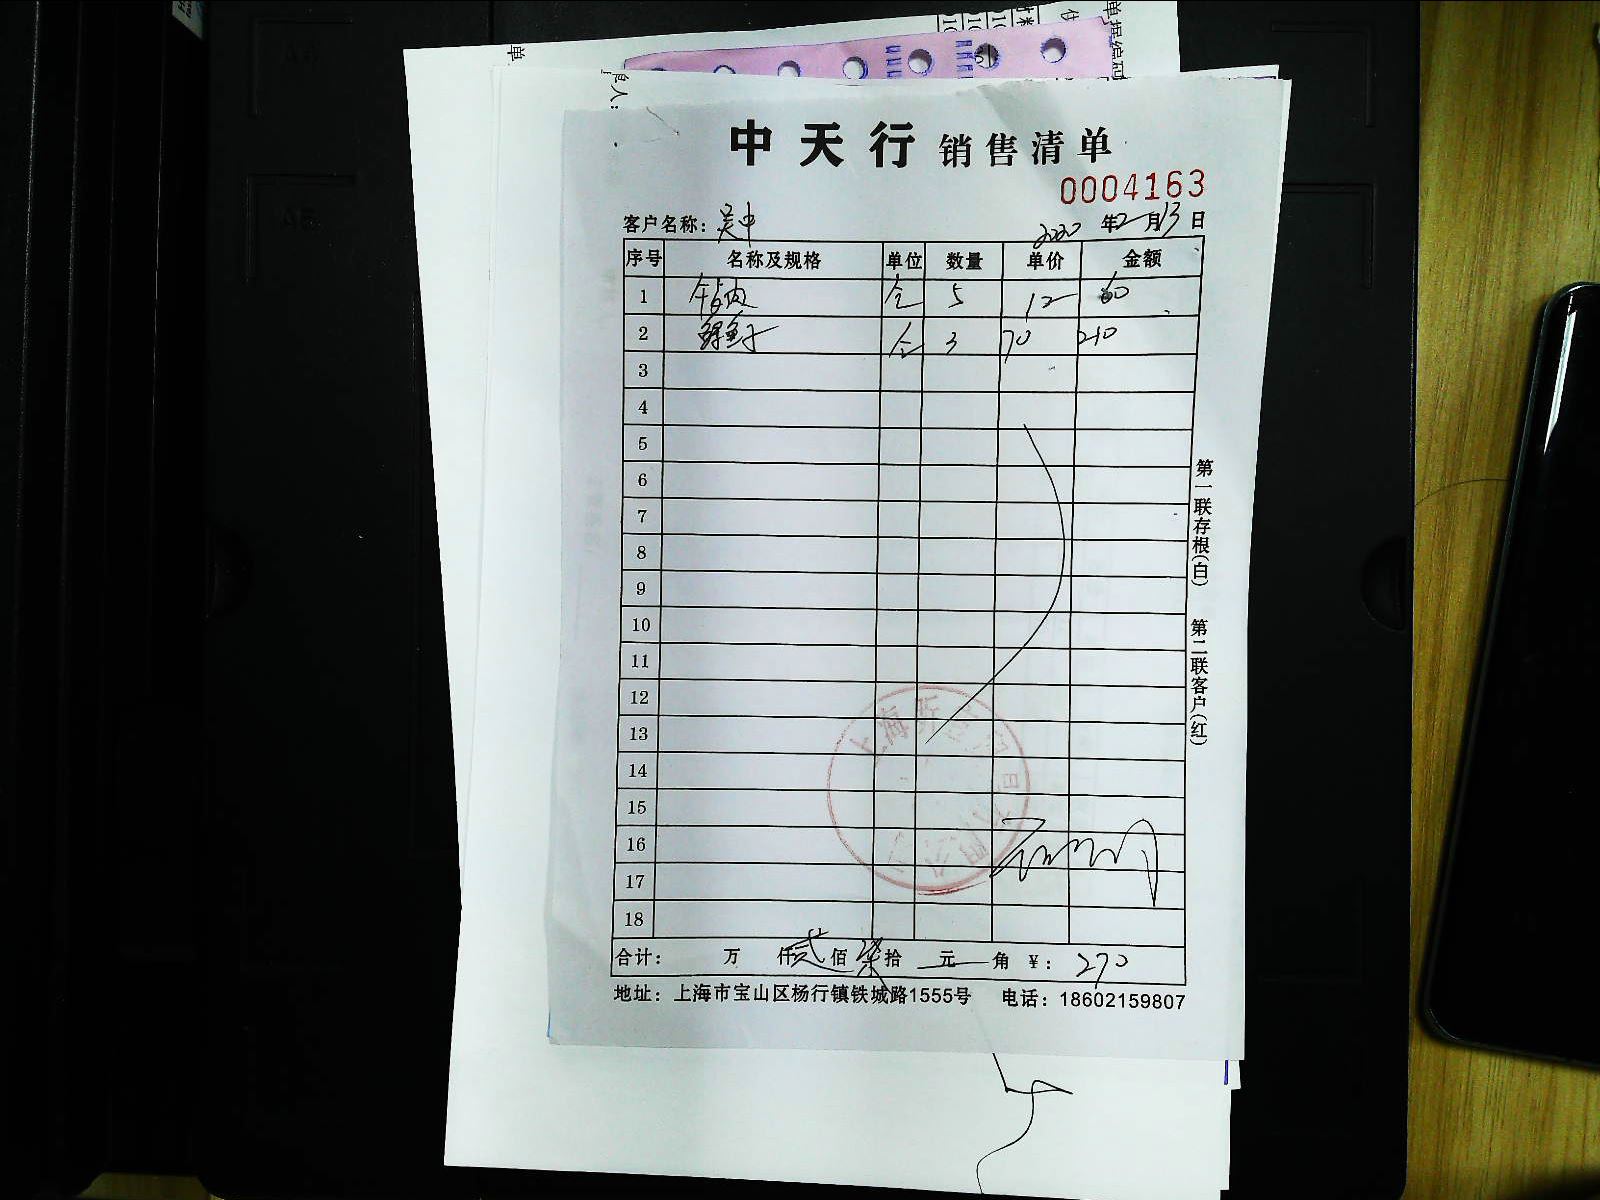 中天行 销售清单
0004163
客户名称：吴中 2020年2月13日
序号 名称及规格 单位 数量 单价 金额
1 5 12 60
2 3 70 210
3
4
5
6
7
8
9
10
11
12
13
14
15
16
17
18
合计： 万 仟贰佰柒拾 元 角 ¥：270
地址：上海市宝山区杨行镇铁城路1555号 电话：18602159807
第一联存根(白) 第二联客户(红)